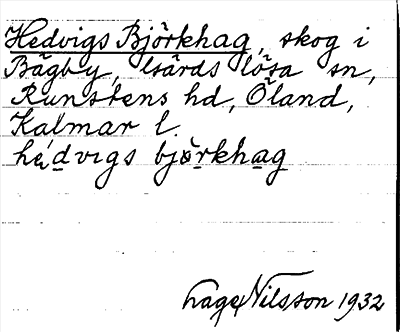 Hedvigs Björkhag, skog i
Bägby, Gärdslösa sn,
Runstens hd, Öland,
Kalmar l.
hédvigs björkhag
Nilsson 1932